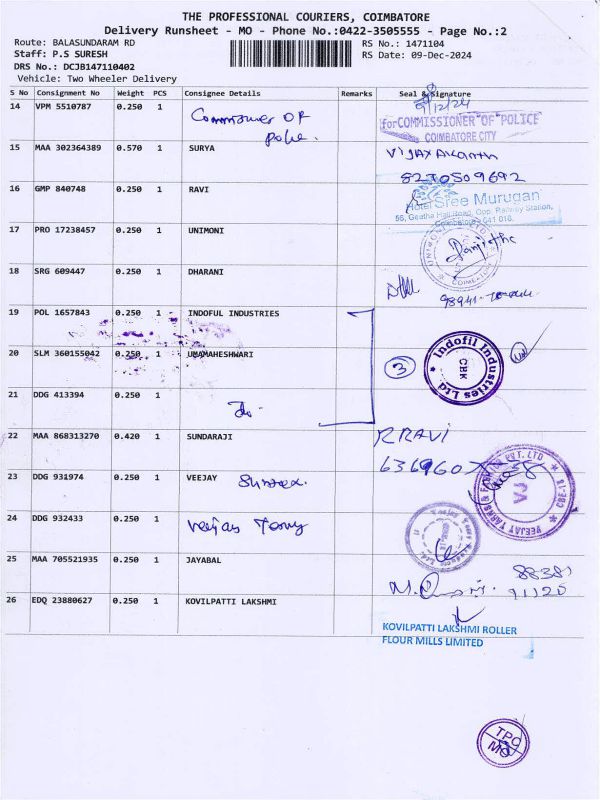 THE PROFESSIONAL COURIERS, COIMBATORE
Delivery Runsheet - MO - Phone No.:0422-3505555 - Page No.:2
Route: BALASUNDARAM RD
RS No.: 1471104
Staff: P.S SURESH
RS Date: 09-Dec-2024
DRS No.: DCJB147110402
Vehicle: Two Wheeler Delivery
S No Consignment No Weight PCS Consignee Details Remarks Seal & Signature
9/12/24
14 VPM 5510787 0.250 1 Commissioner OF
police.
for COMMISSIONER OF POLICE
COIMBATORE CITY
15 MAA 302364389 0.570 1 SURYA
8270509692
16 GMP 840748 0.250 1 RAVI
Hotel Sree Murugan
56, Geetha Hall Road, Opp. Railway Station,
Coimbatore - 641 018.
17 PRO 17238457 0.250 1 UNIMONI
18 SRG 609447 0.250 1 DHARANI
19 POL 1657843 0.250 1 INDOFUL INDUSTRIES
20 SLM 360155042 0.250 1 UMAMAHESHWARI
3
Indofil Industries Ltd
CBK
21 DDG 413394 0.250 1
22 MAA 868313270 0.420 1 SUNDARAJI
R RAVI
23 DDG 931974 0.250 1 VEEJAY
24 DDG 932433 0.250 1
25 MAA 705521935 0.250 1 JAYABAL
88381
91120
26 EDQ 23880627 0.250 1 KOVILPATTI LAKSHMI
KOVILPATTI LAKSHMI ROLLER
FLOUR MILLS LIMITED
TPC
MO